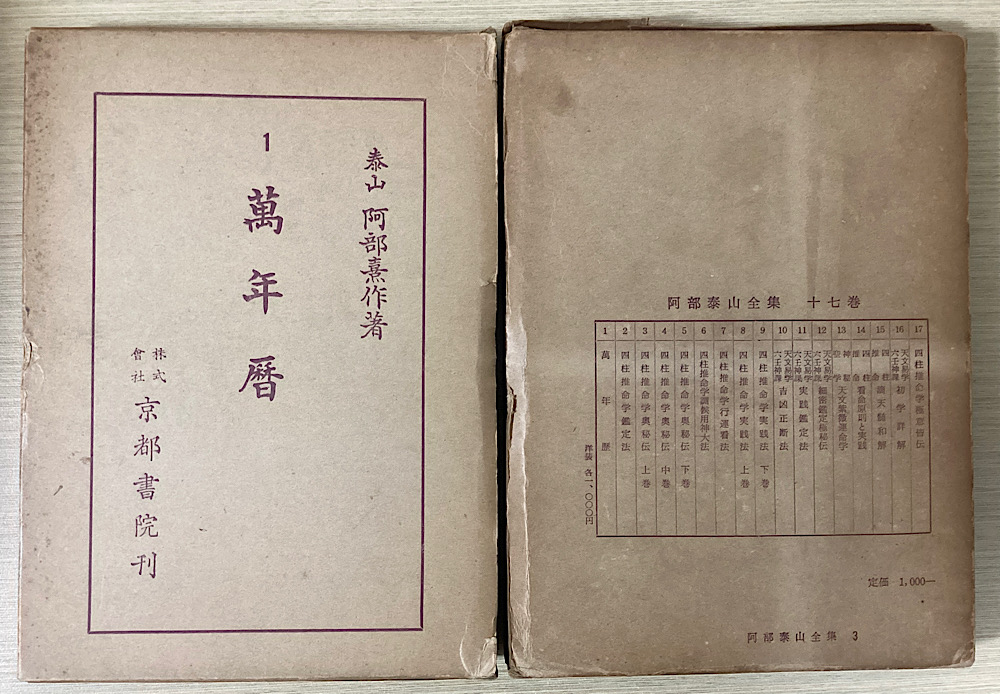 泰山 阿部熹作著
1 萬年暦
株式會社 京都書院刊
阿部泰山全集 十七巻
1 萬年歴
2 四柱推命学鑑定法
3 四柱推命学奥秘伝 上巻
4 四柱推命学奥秘伝 中巻
5 四柱推命学奥秘伝 下巻
6 四柱推命学調候用神大法
7 四柱推命学行運看法
8 四柱推命学実践法 上巻
9 四柱推命学実践法 下巻
10 天文易学六壬神課 吉凶正断法
11 天文易学六壬神課 実践鑑定法
12 天文易学六壬神課 細密鑑定極秘伝
13 神秘 天文紫微運命学
14 四柱推命 看命原則と実践
15 四柱推命 滴天髄和解
16 天文易学六壬神課 初学詳解
17 四柱推命学極意皆伝
洋装 各一、〇〇〇円
定価 1,000―
阿部泰山全集 3